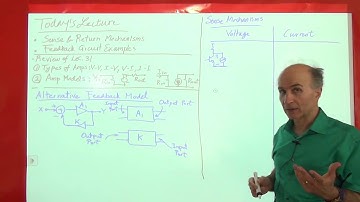 Today's Lecture
• Sense & Return Mechanisms
• Feedback Circuit Examples
Review of Lec. 31
① Types of Amps: V-V, I-V, V-I, I-I
② Amp Models:
Alternative Feedback Model
Input Port
Output Port
X
A₁
Y
K
A₁
Output Port
K
Input Port
Sense Mechanisms
Voltage
Current